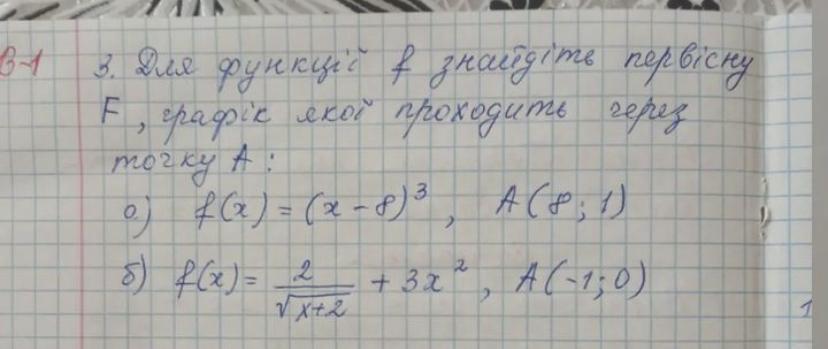 В-1 3. Для функції f знайдіть первісну
F, графік якої проходить через
точку А:
а) f(x) = (x - 8)³, A(8; 1)
б) f(x) = 2/√(x+2) + 3x², A(-1; 0)
1